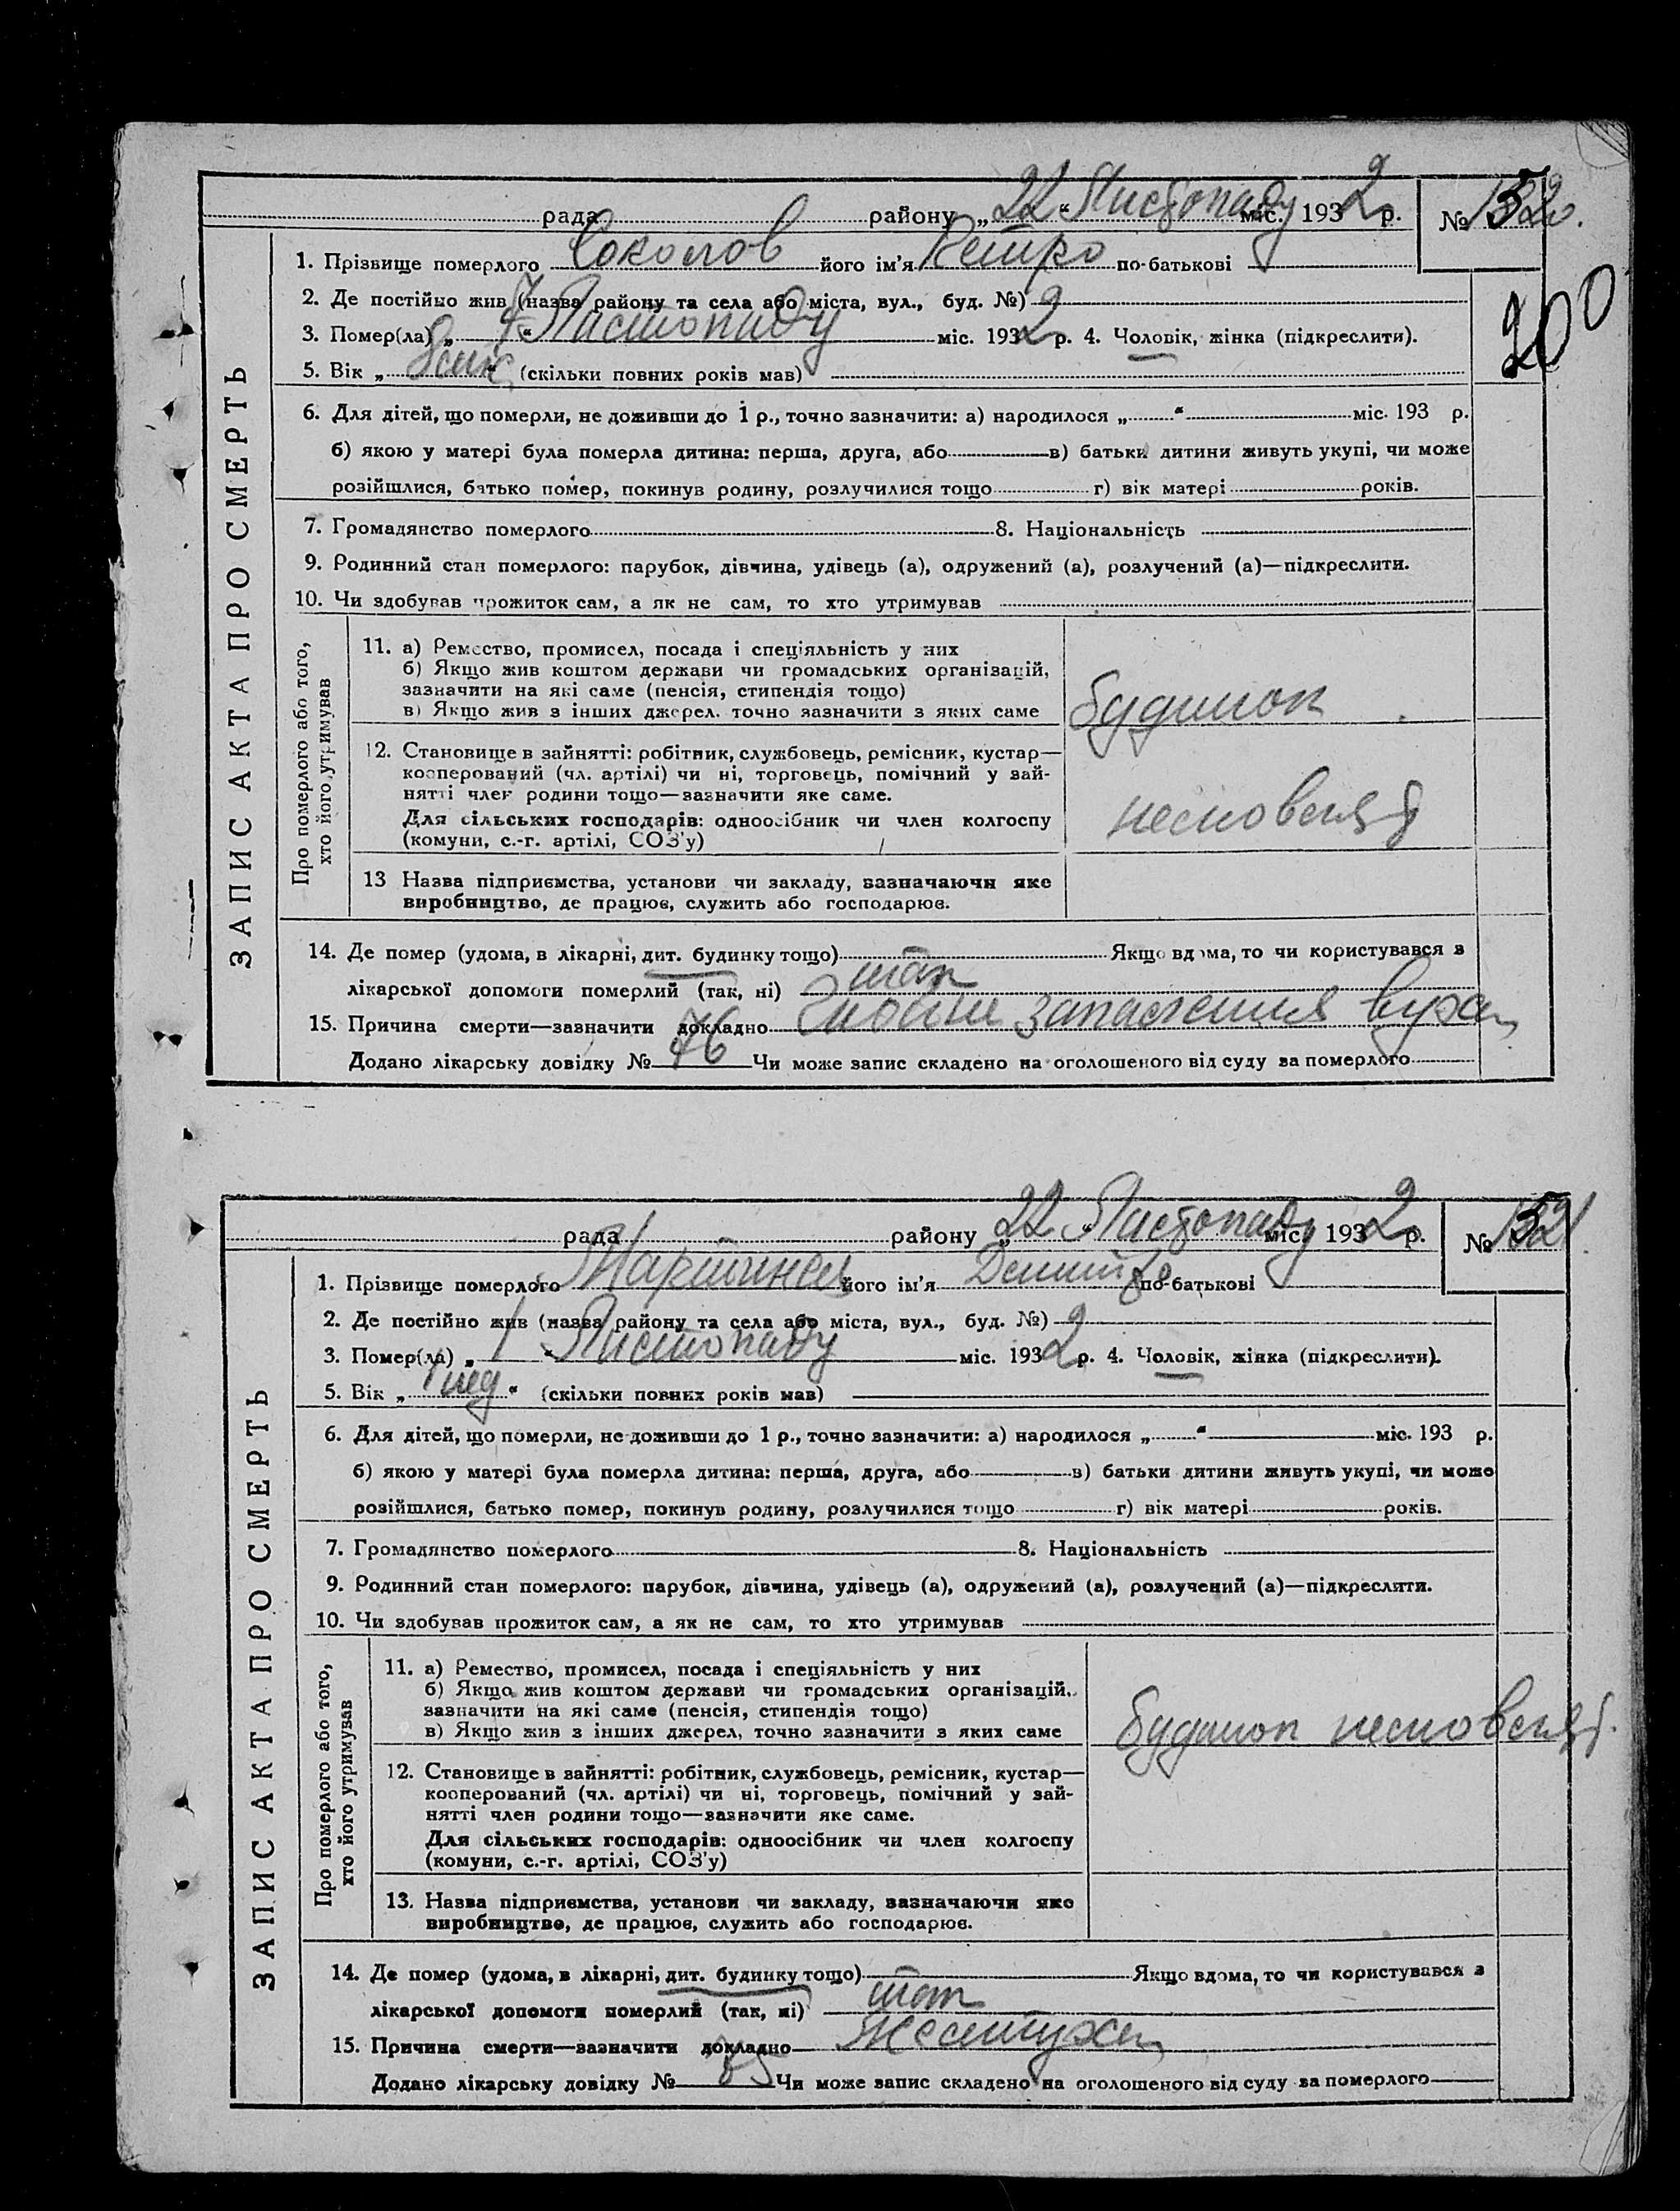 рада района „22“ Листопаду міс. 1932 р. № 1520.
1. Прізвище померлого Соколов його ім'я Петро по-батькові
2. Де постійно жив (назва району та села або міста, вул., буд. №)
3. Помер(ла) „7“ Листопаду міс. 1932 р. 4. Чоловік, жінка (підкреслити).
200
5. Вік „ “ (скільки повних років мав)
6. Для дітей, що померли, не доживши до 1 р., точно зазначити: а) народилося „ “ міс. 193 р.
б) якою у матері була померла дитина: перша, друга, або в) батьки дитини живуть укупі, чи може
розійшлися, батько помер, покинув родину, розлучилися тощо г) вік матері років.
7. Громадянство померлого 8. Національність
9. Родинний стан померлого: парубок, дівчина, удівець (а), одружений (а), розлучений (а)—підкреслити.
10. Чи здобував прожиток сам, а як не сам, то хто утримував
ЗАПИС АКТА ПРО СМЕРТЬ
Про померлого або того, хто його утримував
11. а) Ремество, промисел, посада і спеціяльність у них
б) Якщо жив коштом держави чи громадських організацій,
зазначити на які саме (пенсія, стипендія тощо)
в) Якщо жив з інших джерел, точно зазначити з яких саме
будинок
12. Становище в зайнятті: робітник, службовець, ремісник, кустар—
кооперований (чл. артілі) чи ні, торговець, помічний у зай-
нятті член родини тощо—зазначити яке саме.
Для сільських господарів: одноосібник чи член колгоспу
(комуни, с.-г. артілі, СОЗ'у)
немовлят
13 Назва підприємства, установи чи закладу, зазначаючи яке
виробництво, де працює, служить або господарює.
14. Де помер (удома, в лікарні, дит. будинку тощо) Якщо вдома, то чи користувався з
лікарської допомоги померлий (так, ні) так
15. Причина смерти—зазначити докладно запалення вуха
Додано лікарську довідку № 76 Чи може запис складено на оголошеного від суду за померлого
рада району „22“ Листопаду міс. 1932 р. № 1521.
1. Прізвище померлого його ім'я по-батькові
2. Де постійно жив (назва району та села або міста, вул., буд. №)
3. Помер(ла) „1“ Листопаду міс. 1932 р. 4. Чоловік, жінка (підкреслити).
5. Вік „ “ (скільки повних років мав)
6. Для дітей, що померли, не доживши до 1 р., точно зазначити: а) народилося „ “ міс. 193 р.
б) якою у матері була померла дитина: перша, друга, або в) батьки дитини живуть укупі, чи може
розійшлися, батько помер, покинув родину, розлучилися тощо г) вік матері років.
7. Громадянство померлого 8. Національність
9. Родинний стан померлого: парубок, дівчина, удівець (а), одружений (а), розлучений (а)—підкреслити.
10. Чи здобував прожиток сам, а як не сам, то хто утримував
ЗАПИС АКТА ПРО СМЕРТЬ
Про померлого або того, хто його утримував
11. а) Ремество, промисел, посада і спеціяльність у них
б) Якщо жив коштом держави чи громадських організацій,
зазначити на які саме (пенсія, стипендія тощо)
в) Якщо жив з інших джерел, точно зазначити з яких саме
будинок немовлят.
12. Становище в зайнятті: робітник, службовець, ремісник, кустар—
кооперований (чл. артілі) чи ні, торговець, помічний у зай-
нятті член родини тощо—зазначити яке саме.
Для сільських господарів: одноосібник чи член колгоспу
(комуни, с.-г. артілі, СОЗ'у)
13. Назва підприємства, установи чи закладу, зазначаючи яке
виробництво, де працює, служить або господарює.
14. Де помер (удома, в лікарні, дит. будинку тощо) Якщо вдома, то чи користувався з
лікарської допомоги померлий (так, ні) так
15. Причина смерти—зазначити докладно
Додано лікарську довідку № 75 Чи може запис складено на оголошеного від суду за померлого